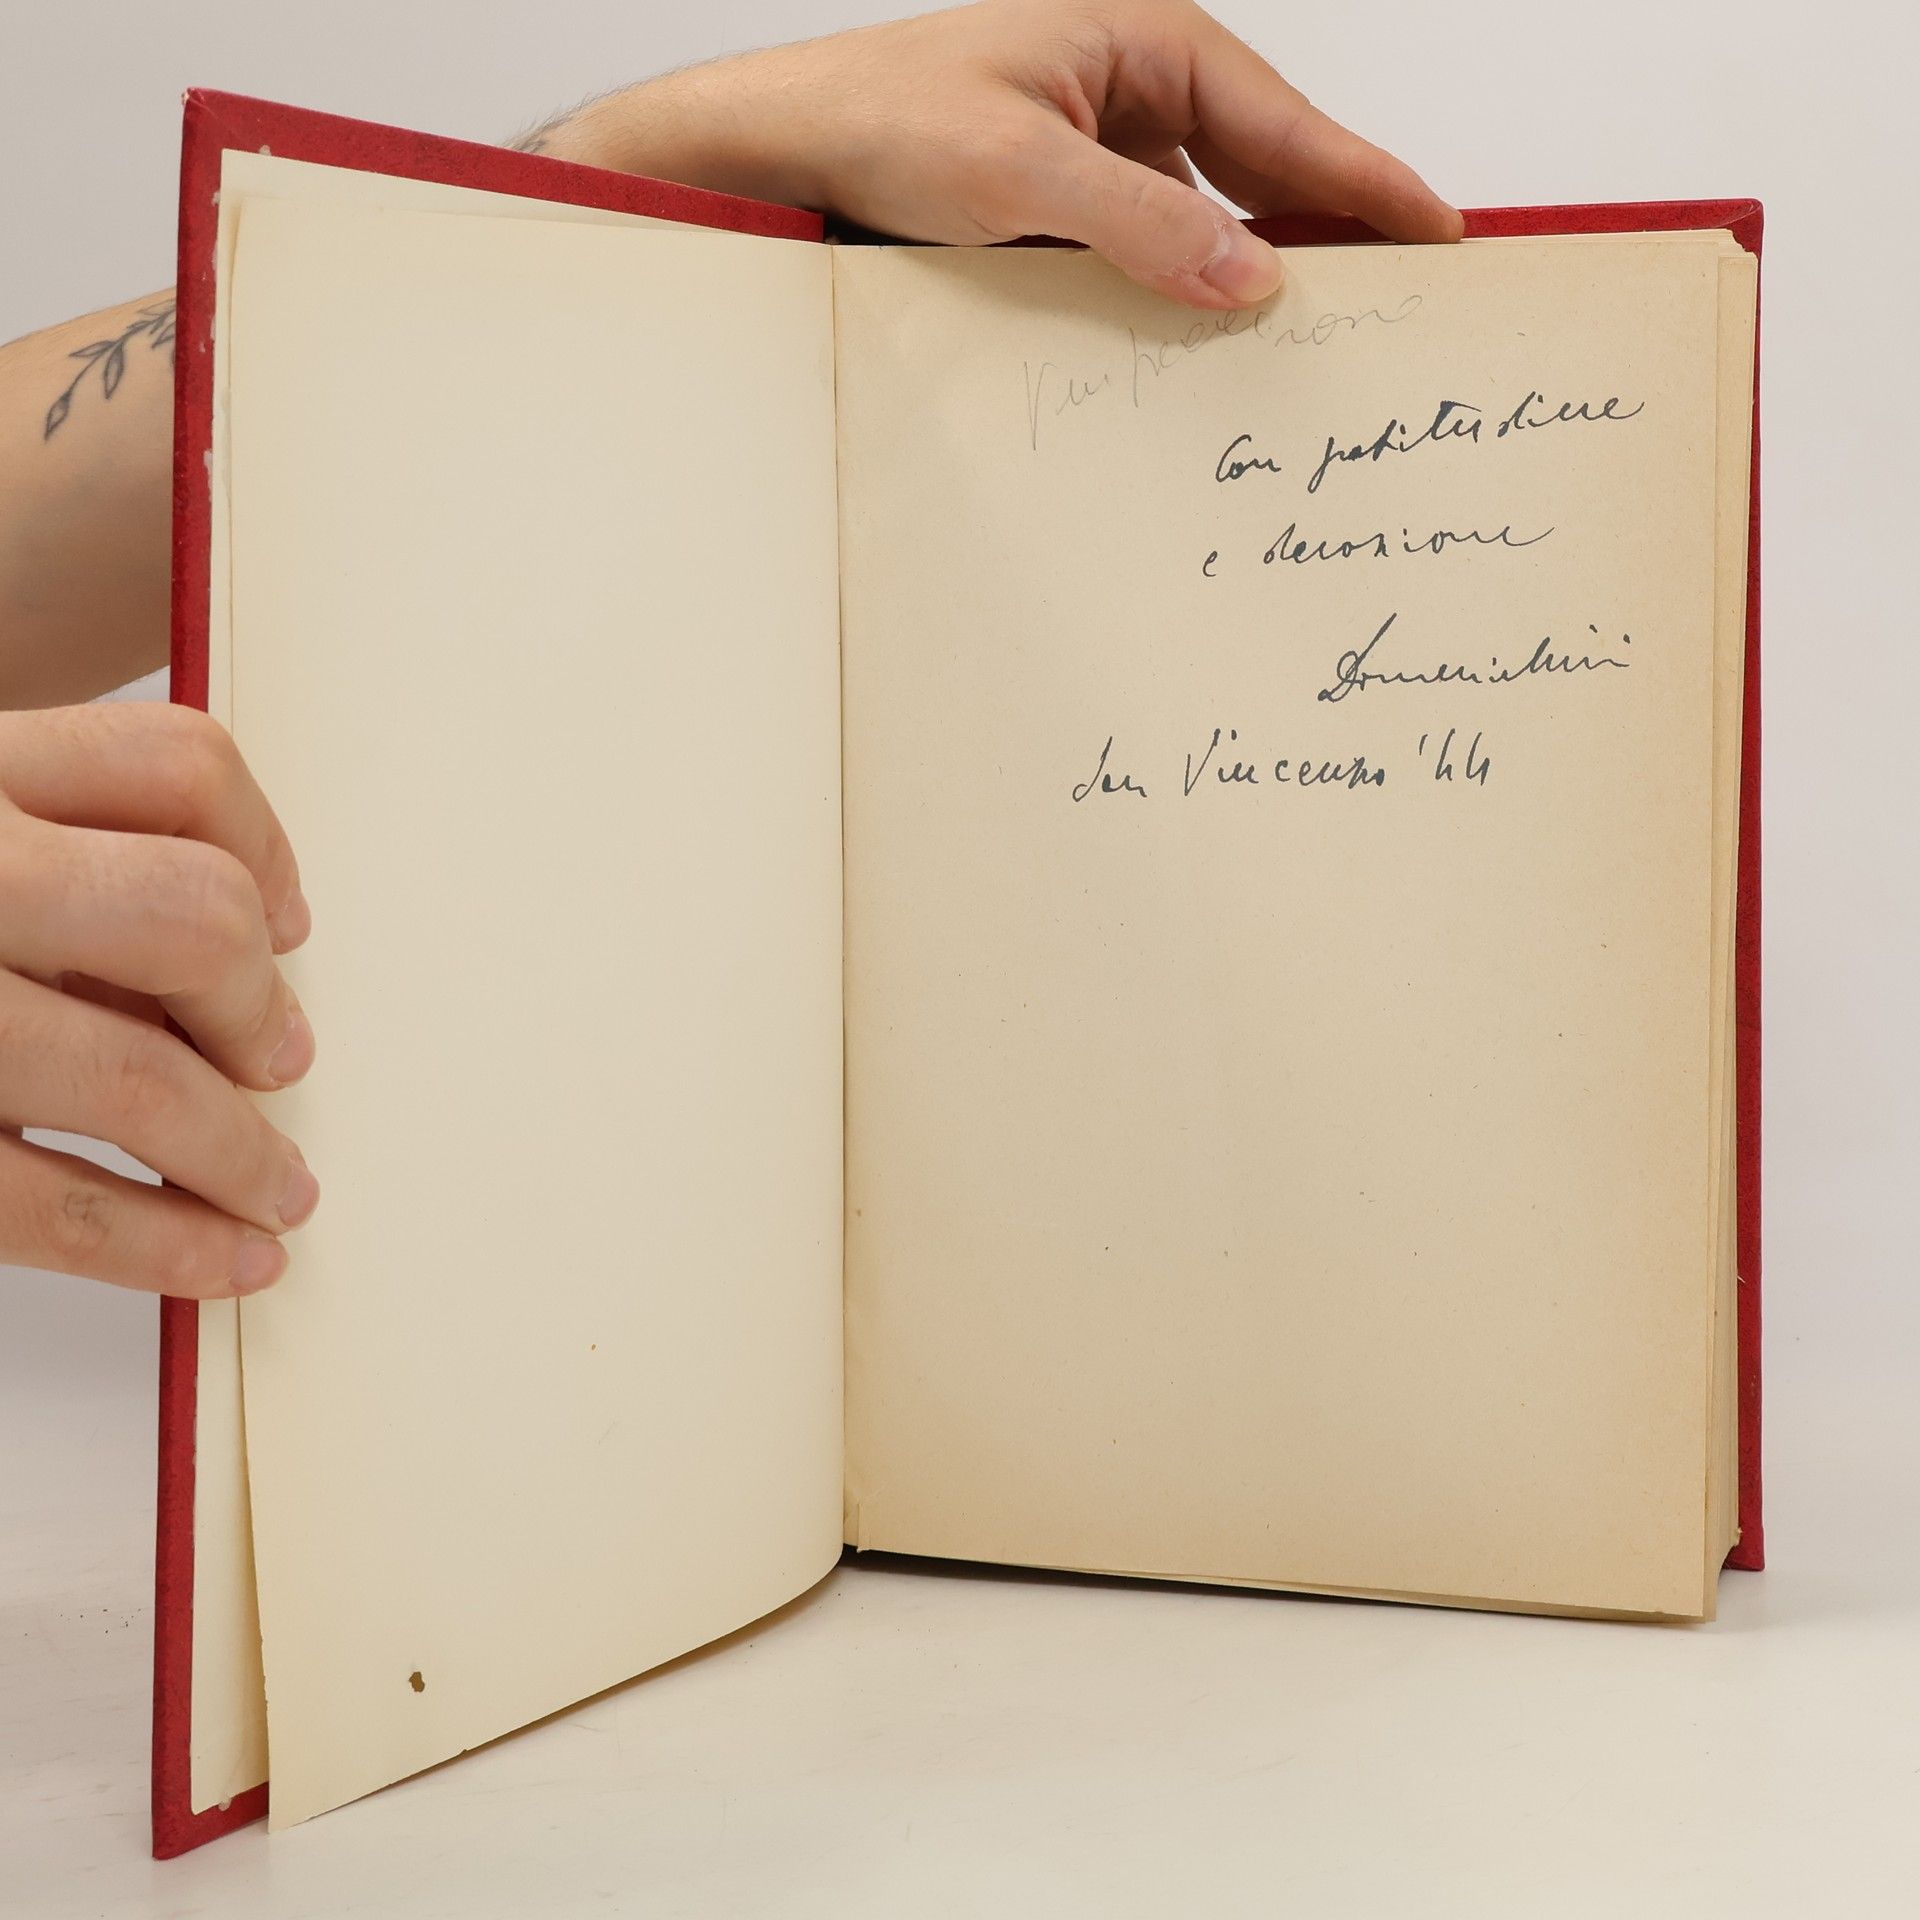 Con gratitudine
e devozione
Domenichini
San Vincenzo '44